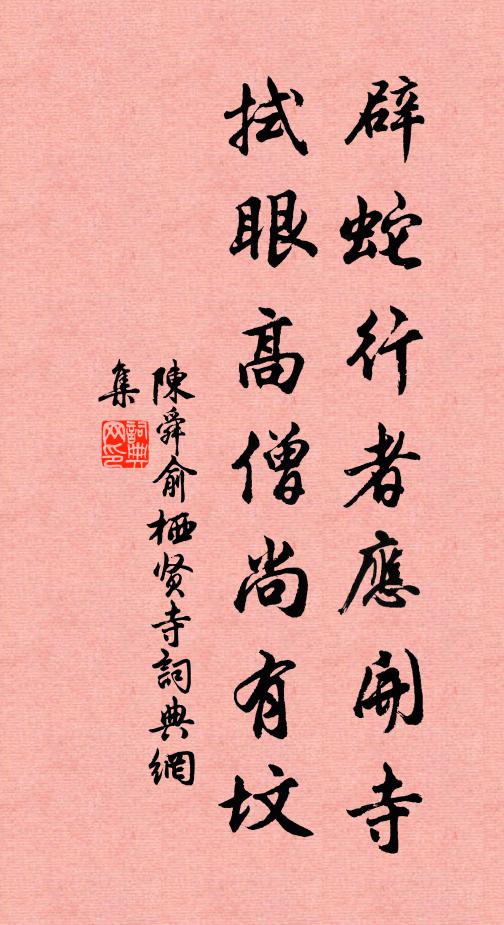 辟蛇行者應開寺
拭眼高僧尚有墳
陳舜俞栖贤寺詞典網
集
詞典网印